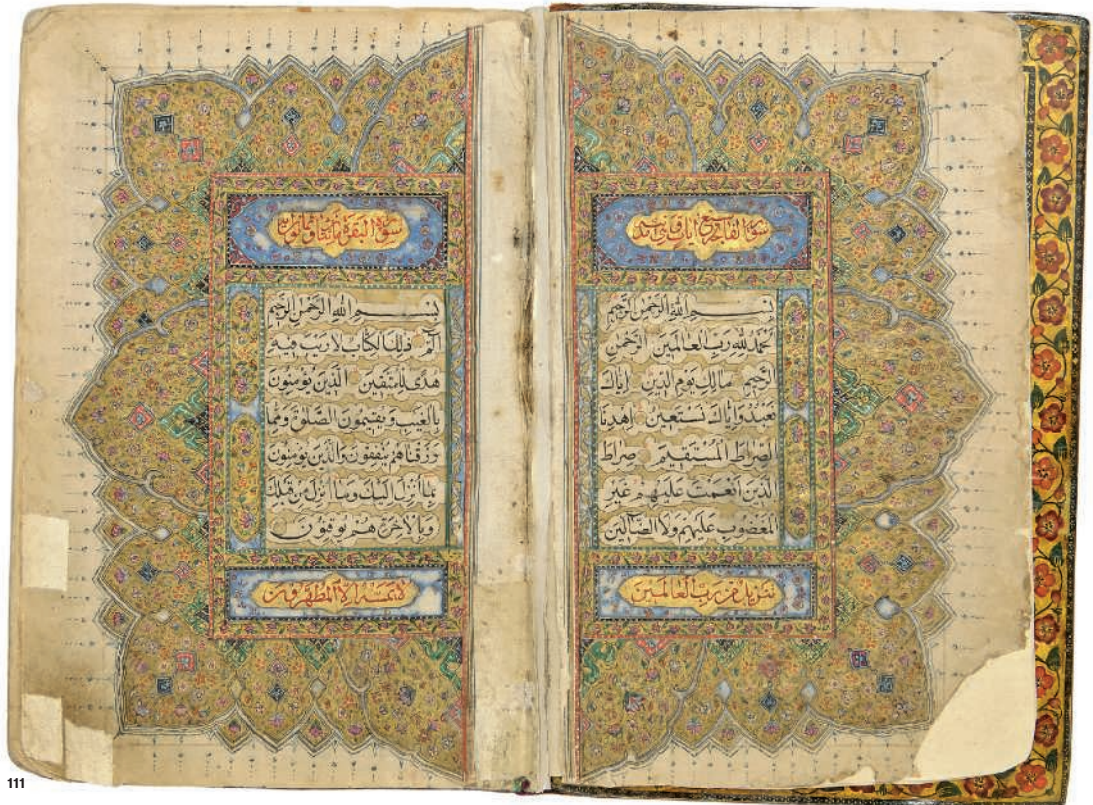 سورة الفاتحة سبع ايات
بسم الله الرحمن الرحيم
الحمد لله رب العالمين الرحمن
الرحيم مالك يوم الدين اياك
نعبد واياك نستعين اهدنا
الصراط المستقيم صراط
الذين انعمت عليهم غير
المغضوب عليهم ولا الضالين
تنزيل من رب العالمين
سورة البقرة
بسم الله الرحمن الرحيم
الم ذلك الكتاب لا ريب فيه
هدى للمتقين الذين يؤمنون
بالغيب ويقيمون الصلوة ومما
رزقناهم ينفقون والذين يؤمنون
بما انزل اليك وما انزل من قبلك
وبالاخرة هم يوقنون
لا يمسه الا المطهرون
111